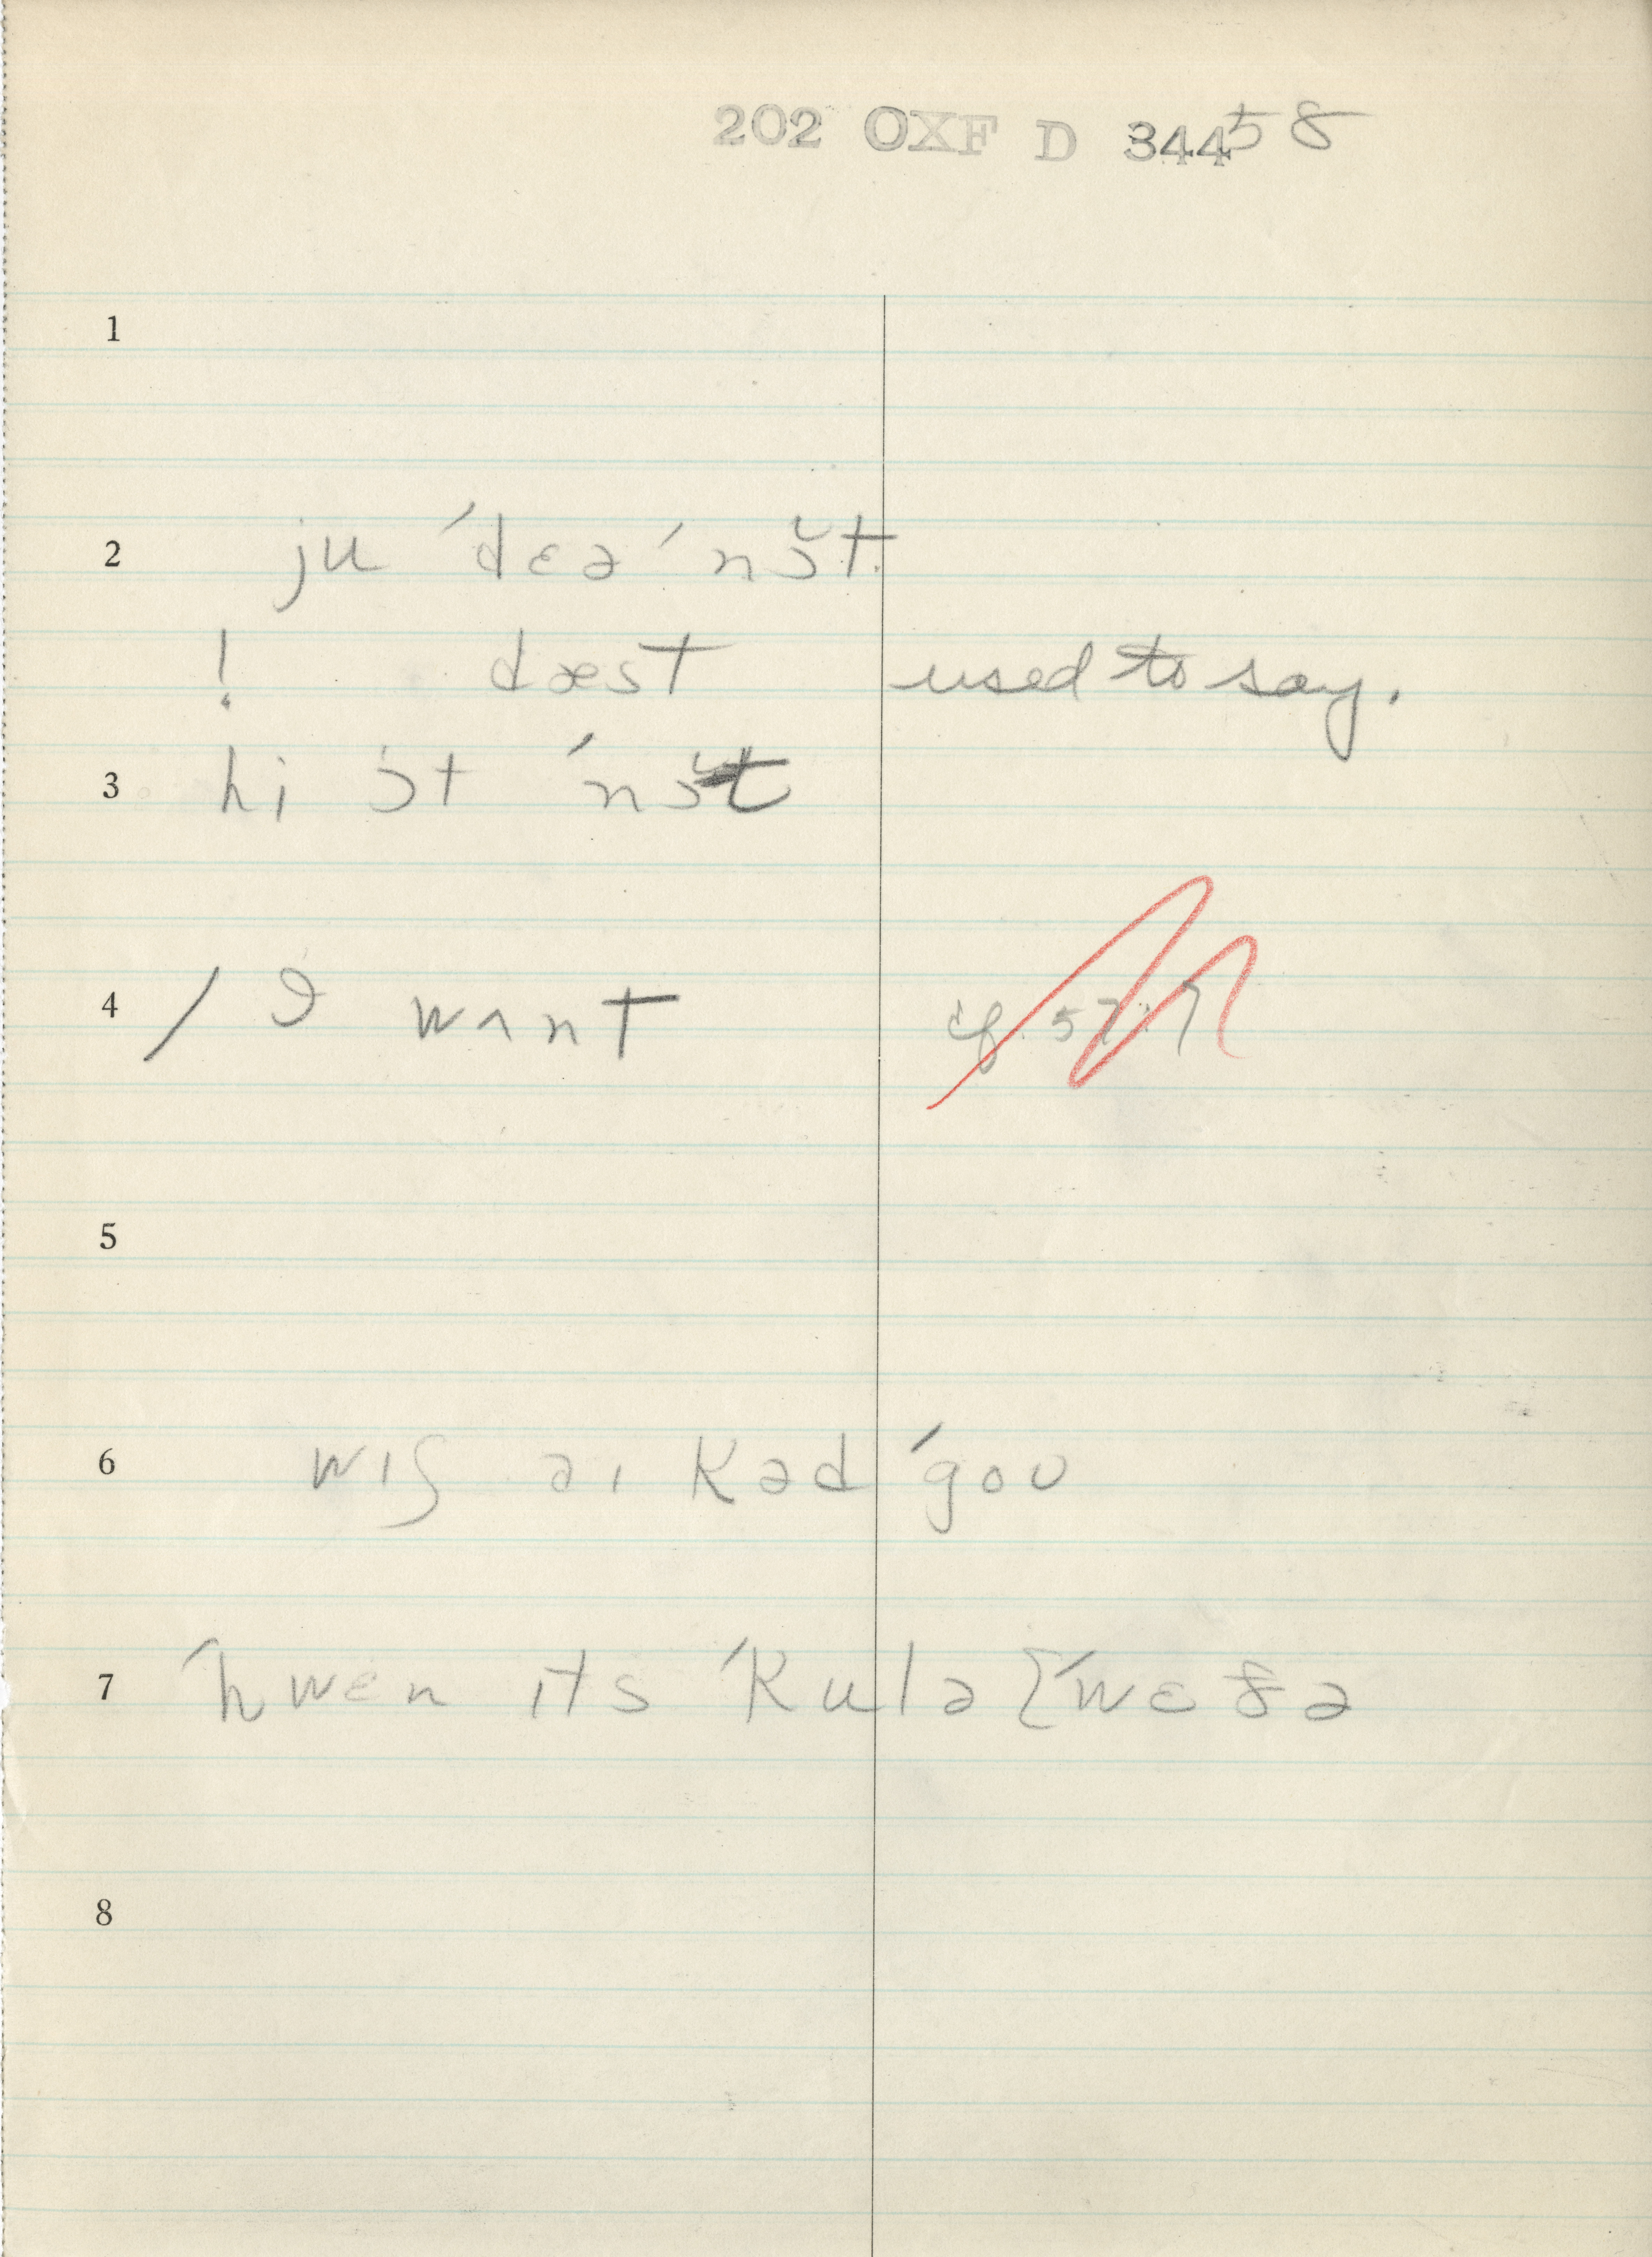 202 OXF D 344 58
1
2 ju ˊdɛə ˊnɔ̆t.
! dæst used to say.
3 hi ɔt ˊnɔ̆t
4 / ə wʌnt cf. 57:7
5
6 wɪʃ aɪ kəd ˊgoʊ
7 ˊhwen ɪts ˊkulə ˊwɛðə
8